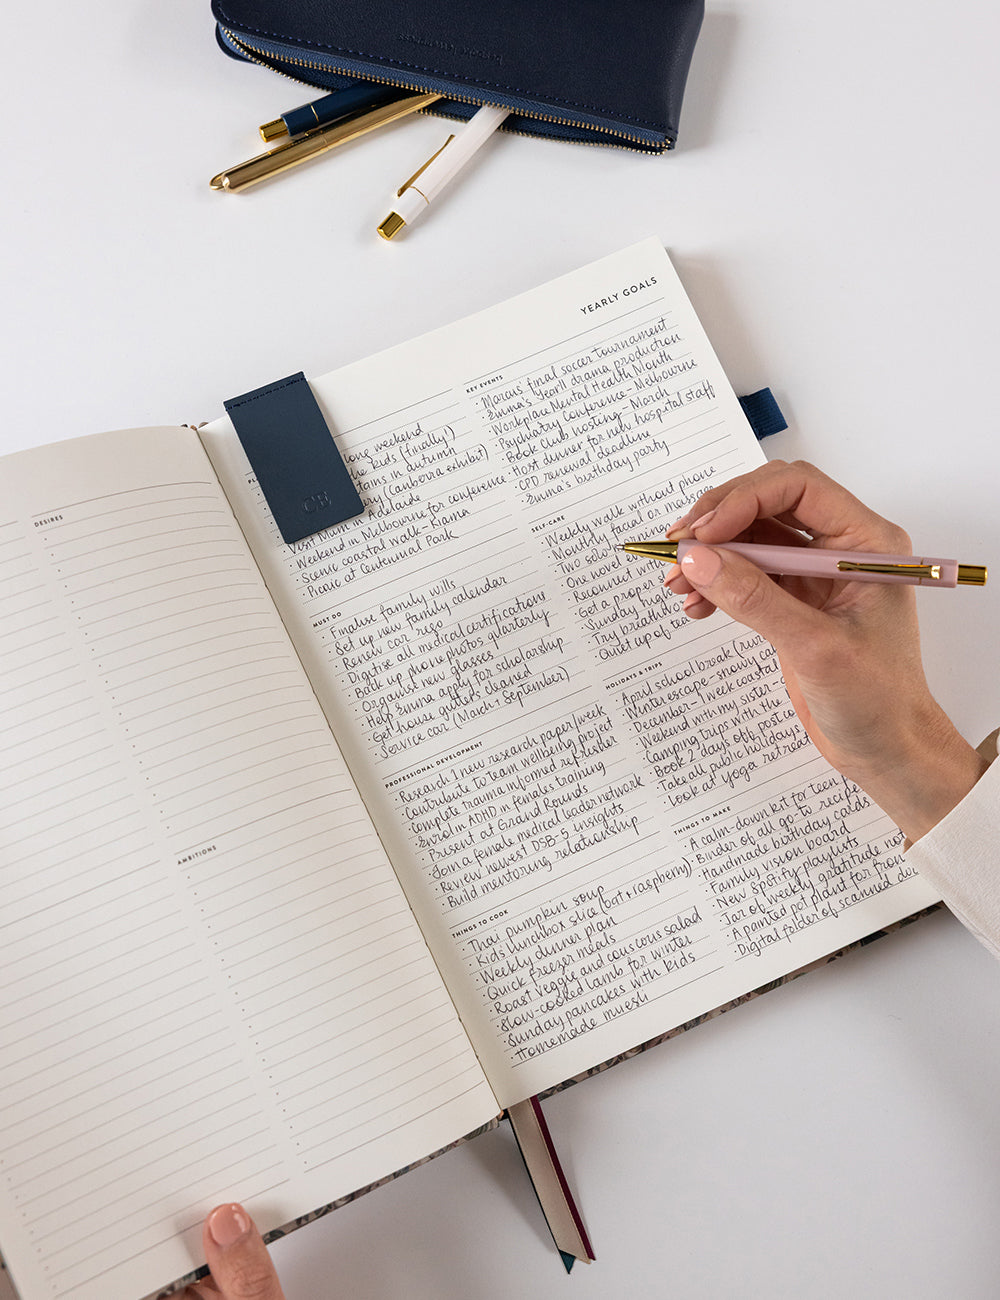 DESIRES
AMBITIONS
YEARLY GOALS
long weekend
the kids (finally!)
in autumn
(Canberra exhibit)
Visit Mum in Adelaide
· Weekend in Melbourne for conference
· Scenic coastal walk - Kiama
· Picnic at Centennial Park
MUST DO
· Finalise family wills
· Set up new family calendar
· Renew car rego
· Digitise all medical certifications
· Back up phone photos quarterly
· Organise new glasses
· Help Emma apply for scholarship
· Get house gutters cleaned
· Service car (March + September)
PROFESSIONAL DEVELOPMENT
· Research 1 new research paper/week
· Contribute to team wellbeing project
· Complete trauma informed refresher
· Enrol in ADHD in females training
· Present at Grand Rounds
· Join a female medical leader network
· Review newest DSB-5 insights
· Build mentoring relationship
THINGS TO COOK
· Thai pumpkin soup
· Kids lunchbox slice (oat + raspberry)
· Weekly dinner plan
· Quick freezer meals
· Roast veggie and cous cous salad
· Slow-cooked lamb for winter
· Sunday pancakes with kids
· Homemade muesli
KEY EVENTS
· Marcus' final soccer tournament
· Emma's Year 11 drama production
· Workplace Mental Health Month
· Psychiatry Conference - Melbourne
· Book Club hosting - March
· Host dinner for new hospital staff
· CPD renewal deadline
· Emma's birthday party
SELF-CARE
· Weekly walk without phone
· Monthly facial or massage
· Two solo
· One novel
· Reconnect with
· Get a proper
· Sunday
· Try
· Quiet cup of tea
HOLIDAYS & TRIPS
· April school break
· Winter escape - snowy
· December - 1 week coastal
· Weekend with my sister -
· Camping trips with the
· Book 2 days off post co
· Take all public holidays
· Look at yoga retreat
THINGS TO MAKE
· A calm-down kit for teen
· Binder of all go-to recipe
· Handmade birthday cards
· Family vision board
· New Spotify playlists
· Jar of weekly gratitude
· A painted pot plant for
· Digital folder of scanned
CB